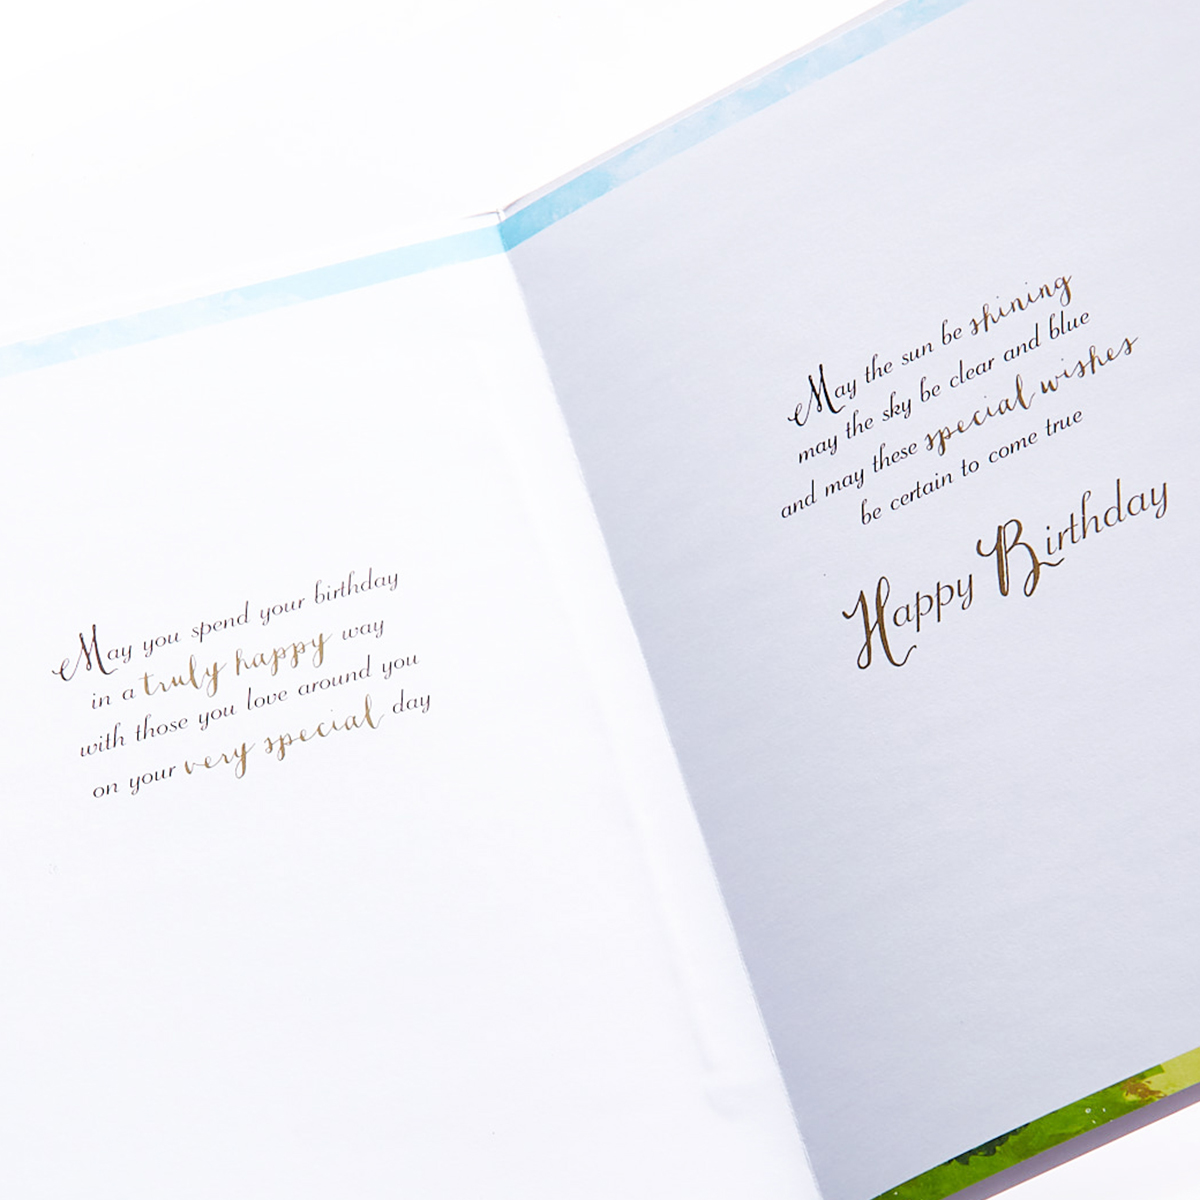 May you spend your birthday
in a truly happy way
with those you love around you
on your very special day
May the sun be shining
may the sky be clear and blue
and may these special wishes
be certain to come true
Happy Birthday